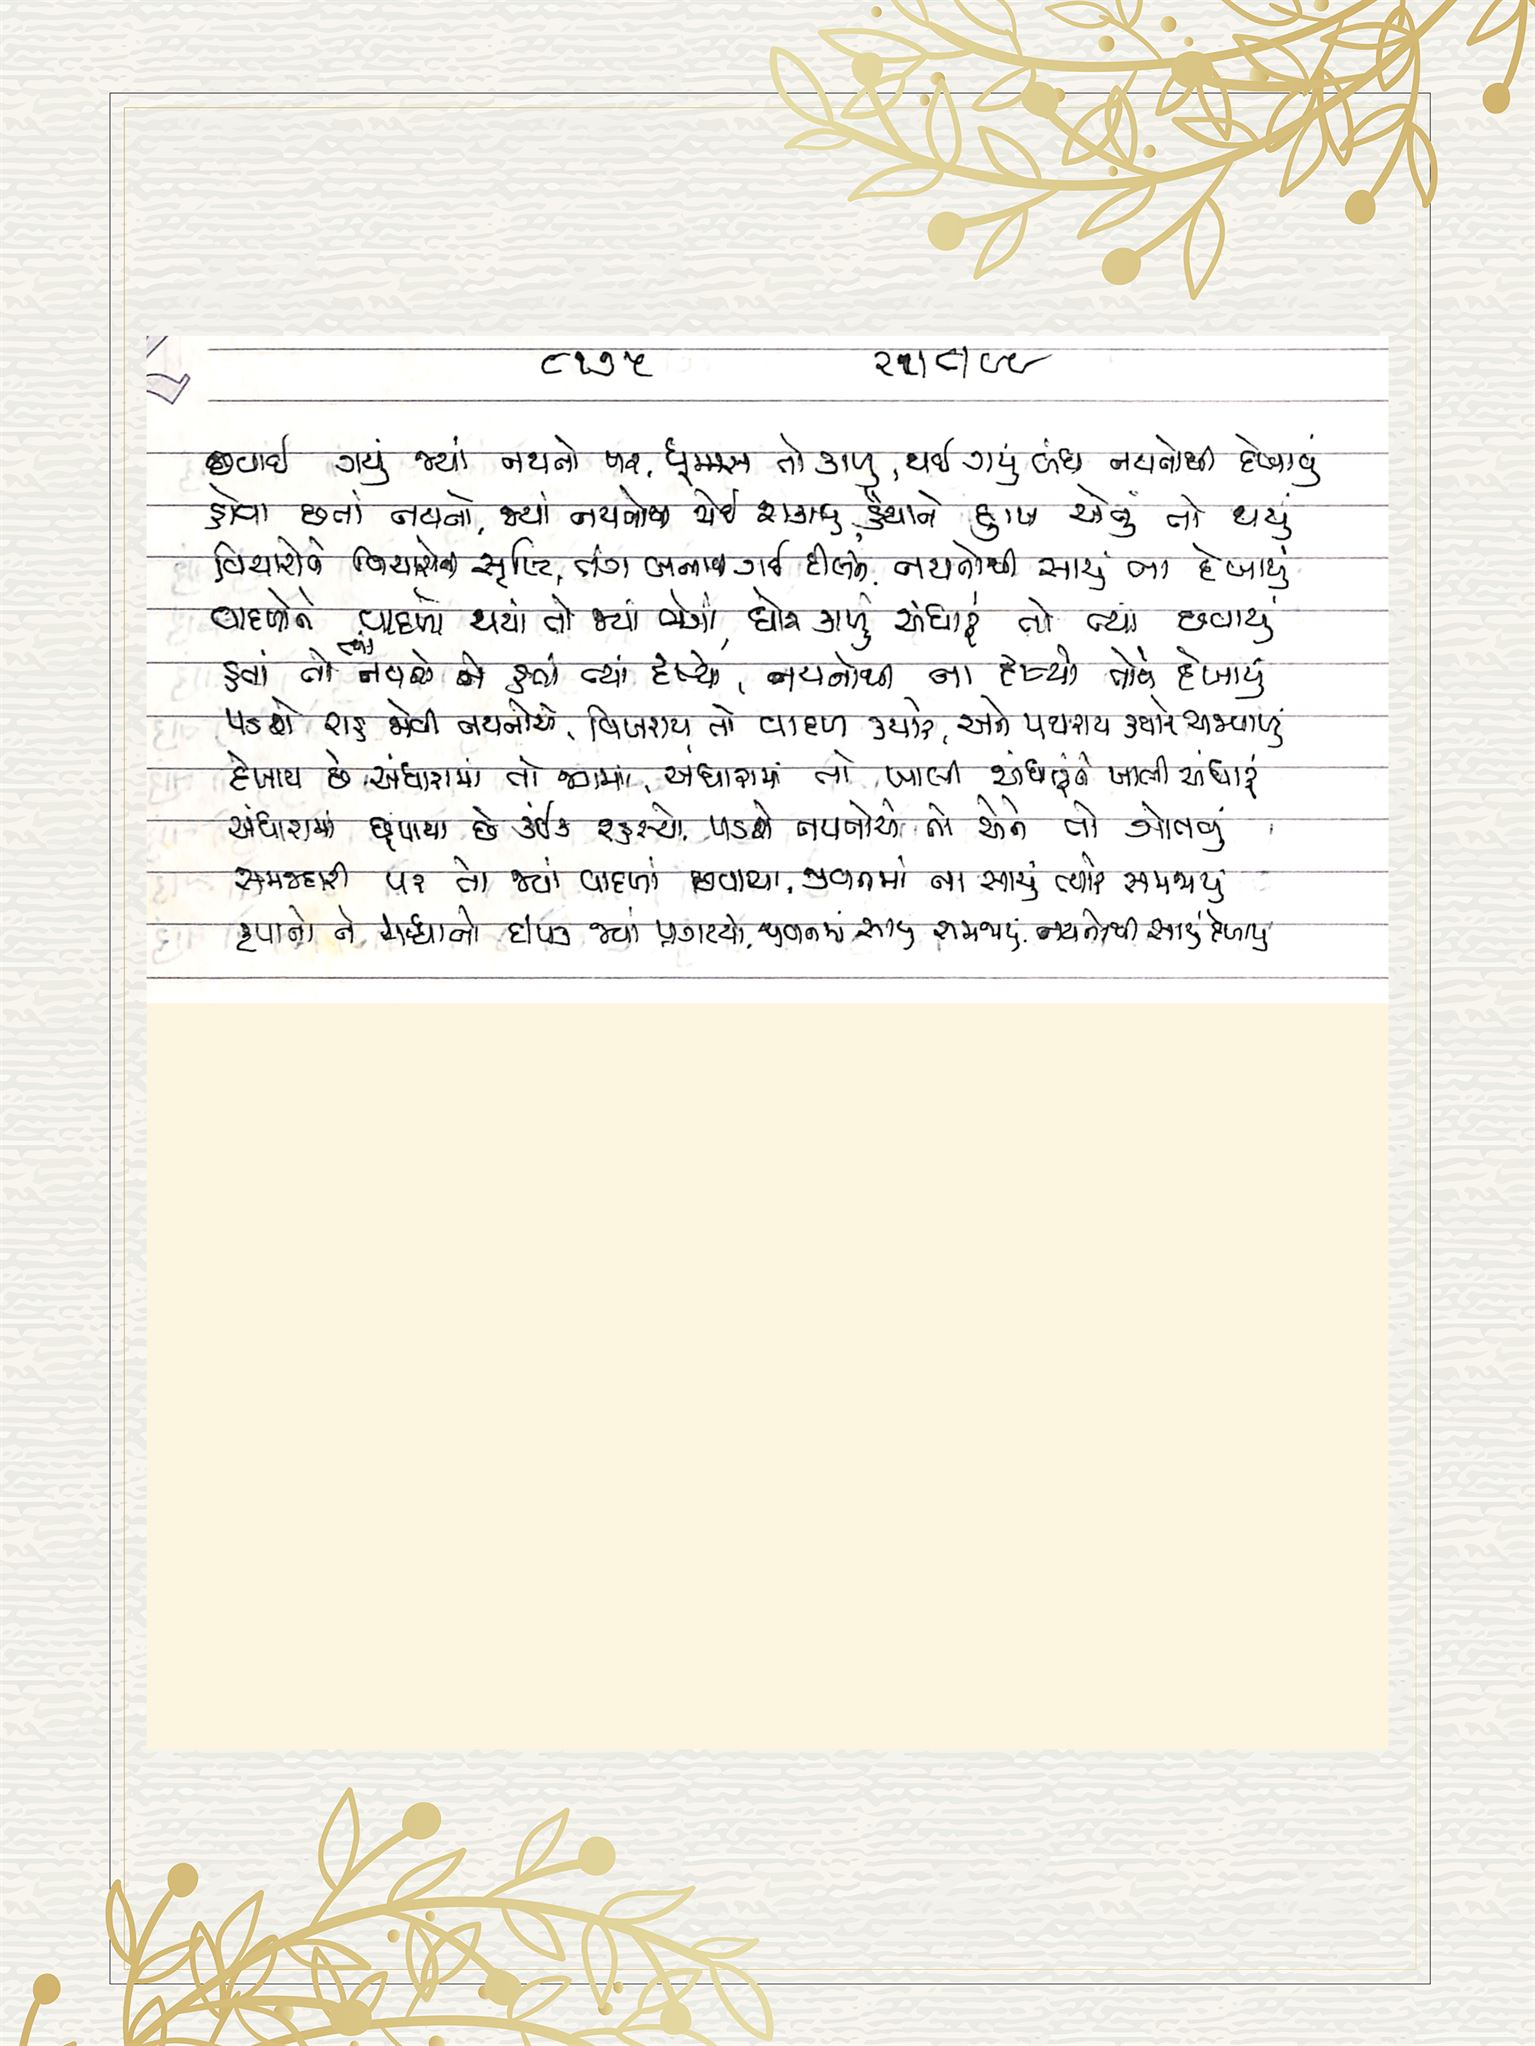 ૮૧૭૫ ૨૧|૮|૯૯
છવાઈ ગયું જ્યાં નયનો પર, ધૂમ્મસ તો કાળું, થઈ ગયું બંધ નયનોથી દેખાવું
હોવા છતાં નયનો, જ્યાં નયનોથી જોઈ શકાયું, હૈયાને દુઃખ એનું તો થયું
વિચારોને વિચારોની સૃષ્ટિ, તંગ બનાવી ગઈ દીલને, નયનોથી સાચું ના દેખાયું
વાદળોને વાદળો થયાં તો જ્યાં ભેગાં, ઘોર કાળું અંધારું તો ત્યાં છવાયું
હતાં તો ત્યાં નયનો ને હતાં ત્યાં દૃશ્યો, નયનોથી ના દૃશ્યો તોયે દેખાયું
પડશે રાહ જોવી નયનોએ, વિખરાય તો વાદળ ક્યારે, અને પથરાય ક્યારે અજવાળું
દેખાય છે અંધારામાં તો જ્યાં, અંધારામાં તો, ખાલી અંધારુંને ખાલી અંધારું
અંધારામાં છુપાયા છે કંઈક રહસ્યો, પડશે નયનોએ તો એને તો ગોતવું
સમજદારી પર તો જ્યાં વાદળાં છવાયા, જીવનમાં ના સાચું ત્યારે સમજાયું
કૃપાનો ને શ્રધ્ધાનો દીપક જ્યાં પ્રગટ્યો, જીવનમાં સાચું સમજાયું, નયનોથી સાચું દેખાયું